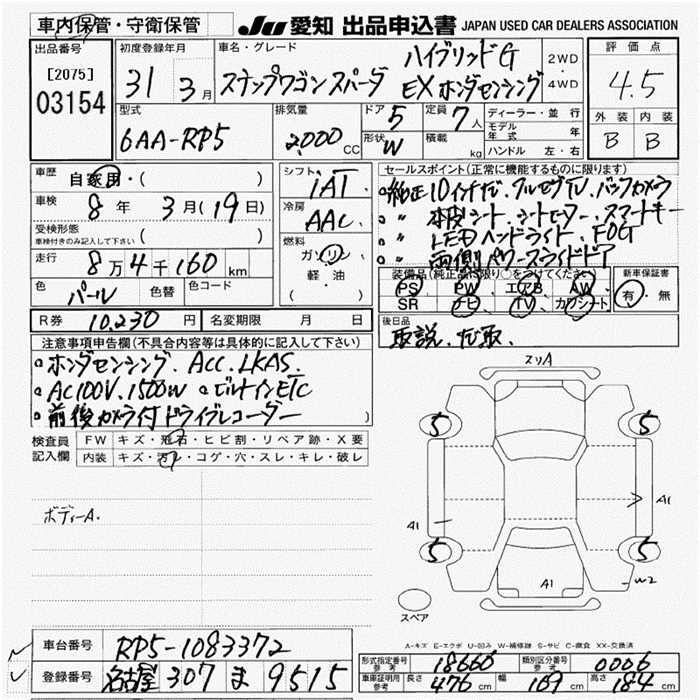 車内保管・守衛保管
JU 愛知 出品申込書 JAPAN USED CAR DEALERS ASSOCIATION
出品番号
[2075]
03154
初度登録年月
31 3月
車名・グレード
ハイブリッドG
ステップワゴンスパーダ EXホンダセンシング
2WD
・
4WD
評価点
4.5
外装 内装
B B
型式
6AA-RP5
排気量
2,000 CC
ドア 5
形状 W
定員 7人
積載 kg
ディーラー・並行
モデル年式 年
ハンドル 左・右
車歴 自家用・( )
車検 8年 3月(19日)
受検形態
車検付きのみ記入して下さい ( )
走行 8万4千160km
色 パール 色替 色コード
シフト IAT
冷房 AAC
燃料
ガソリン
軽・油
( )
セールスポイント(正常に機能するものに限ります)
純正10インチナビ、フルセグTV、バックカメラ
〃 本皮シート、シートヒーター、スマートキー
〃 LEDヘッドライト、FOG
〃 両側パワースライドドア
装備品(純正品に限り○をつけてください)
PS PW エアB AW
SR ナビ TV カワシート
新車保証書
有・無
R券 10,230円 名変期限 月 日
後日品
取説、ナビ取、
注意事項申告欄(不具合内容等は具体的に記入して下さい)
ホンダセンシング、ACC、LKAS、
AC100V、1500W ビルトインETC
前後カメラ付ドライブレコーダー
検査員記入欄
FW キズ・飛石・ヒビ割・リペア跡・X要
内装 キズ・汚レ・コゲ・穴・スレ・キレ・破レ
ボディーA.
スリA
5 5
A1 A1
5 5
A1
W2
スペア
A-キズ E-エクボ U-凹み W-補修跡 S-サビ C-腐食 XX-交換済
車台番号 RP5-1083372
登録番号 名古屋 307 ま 9515
形式指定番号参考 18660 類別区分番号参考 0006
車庫証明用参考 長さ 476cm 幅 169cm 高さ 184cm